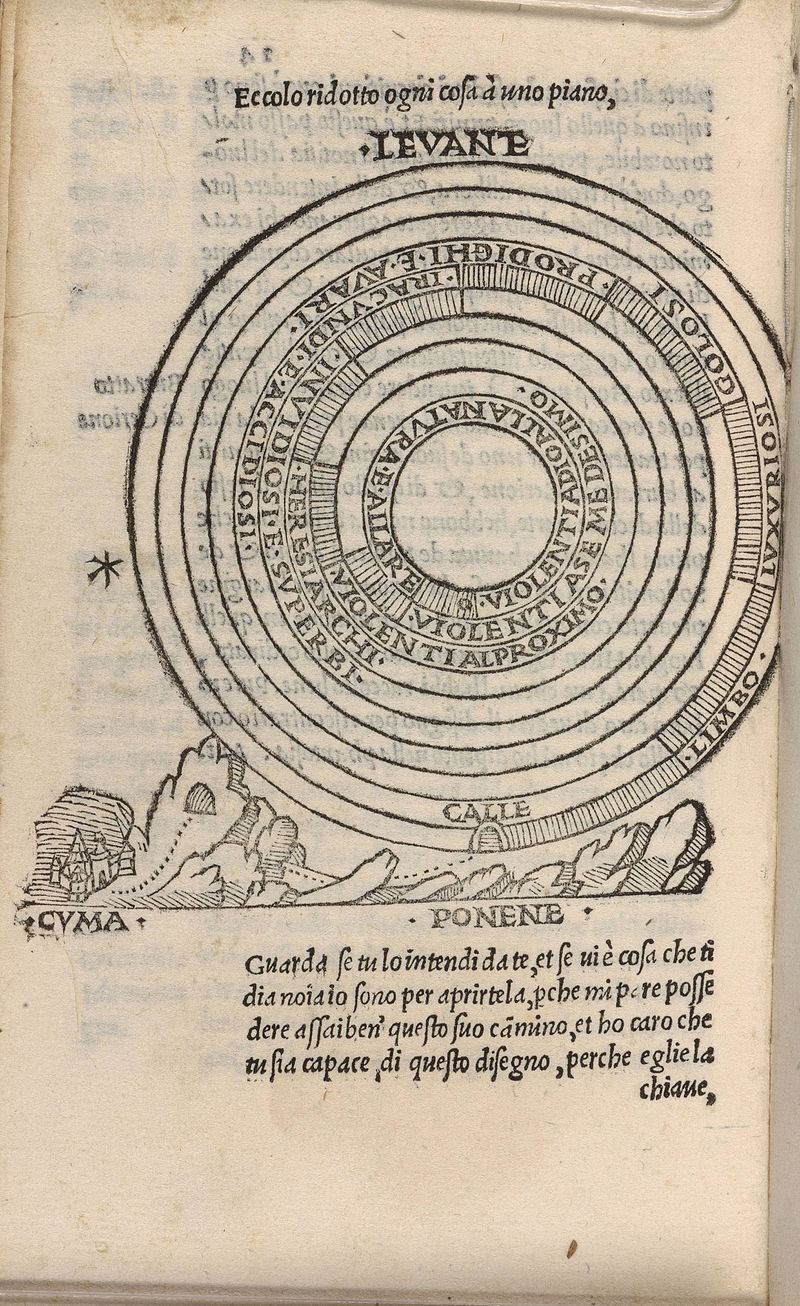 Eccolo ridotto ogni cosa à uno piano,
·LEVANE
GOLOSI
·PRODIGHI·E·AVARI·
·IRACVNDI·E·ACCIDIOSI·
·INVIDIOSI·E·SVPERBI·
·HERESIARCHI·
VIOLENTI AL PROXIMO·
·VIOLENTI A SE MEDESIMO·
·VIOLENTI A DIO ALLA NATVRA·E·ALLARE
·LIMBO·
CALLE
·CVMA·
·PONENE·
Guarda se tu lo intendi da te, et se ui è cosa che ti
dia noia io sono per aprirtela, ꝑche mi pare posse
dere assai ben' questo suo cãmino, et ho caro che
tu sia capace di questo disegno, perche eglie la
chiaue,